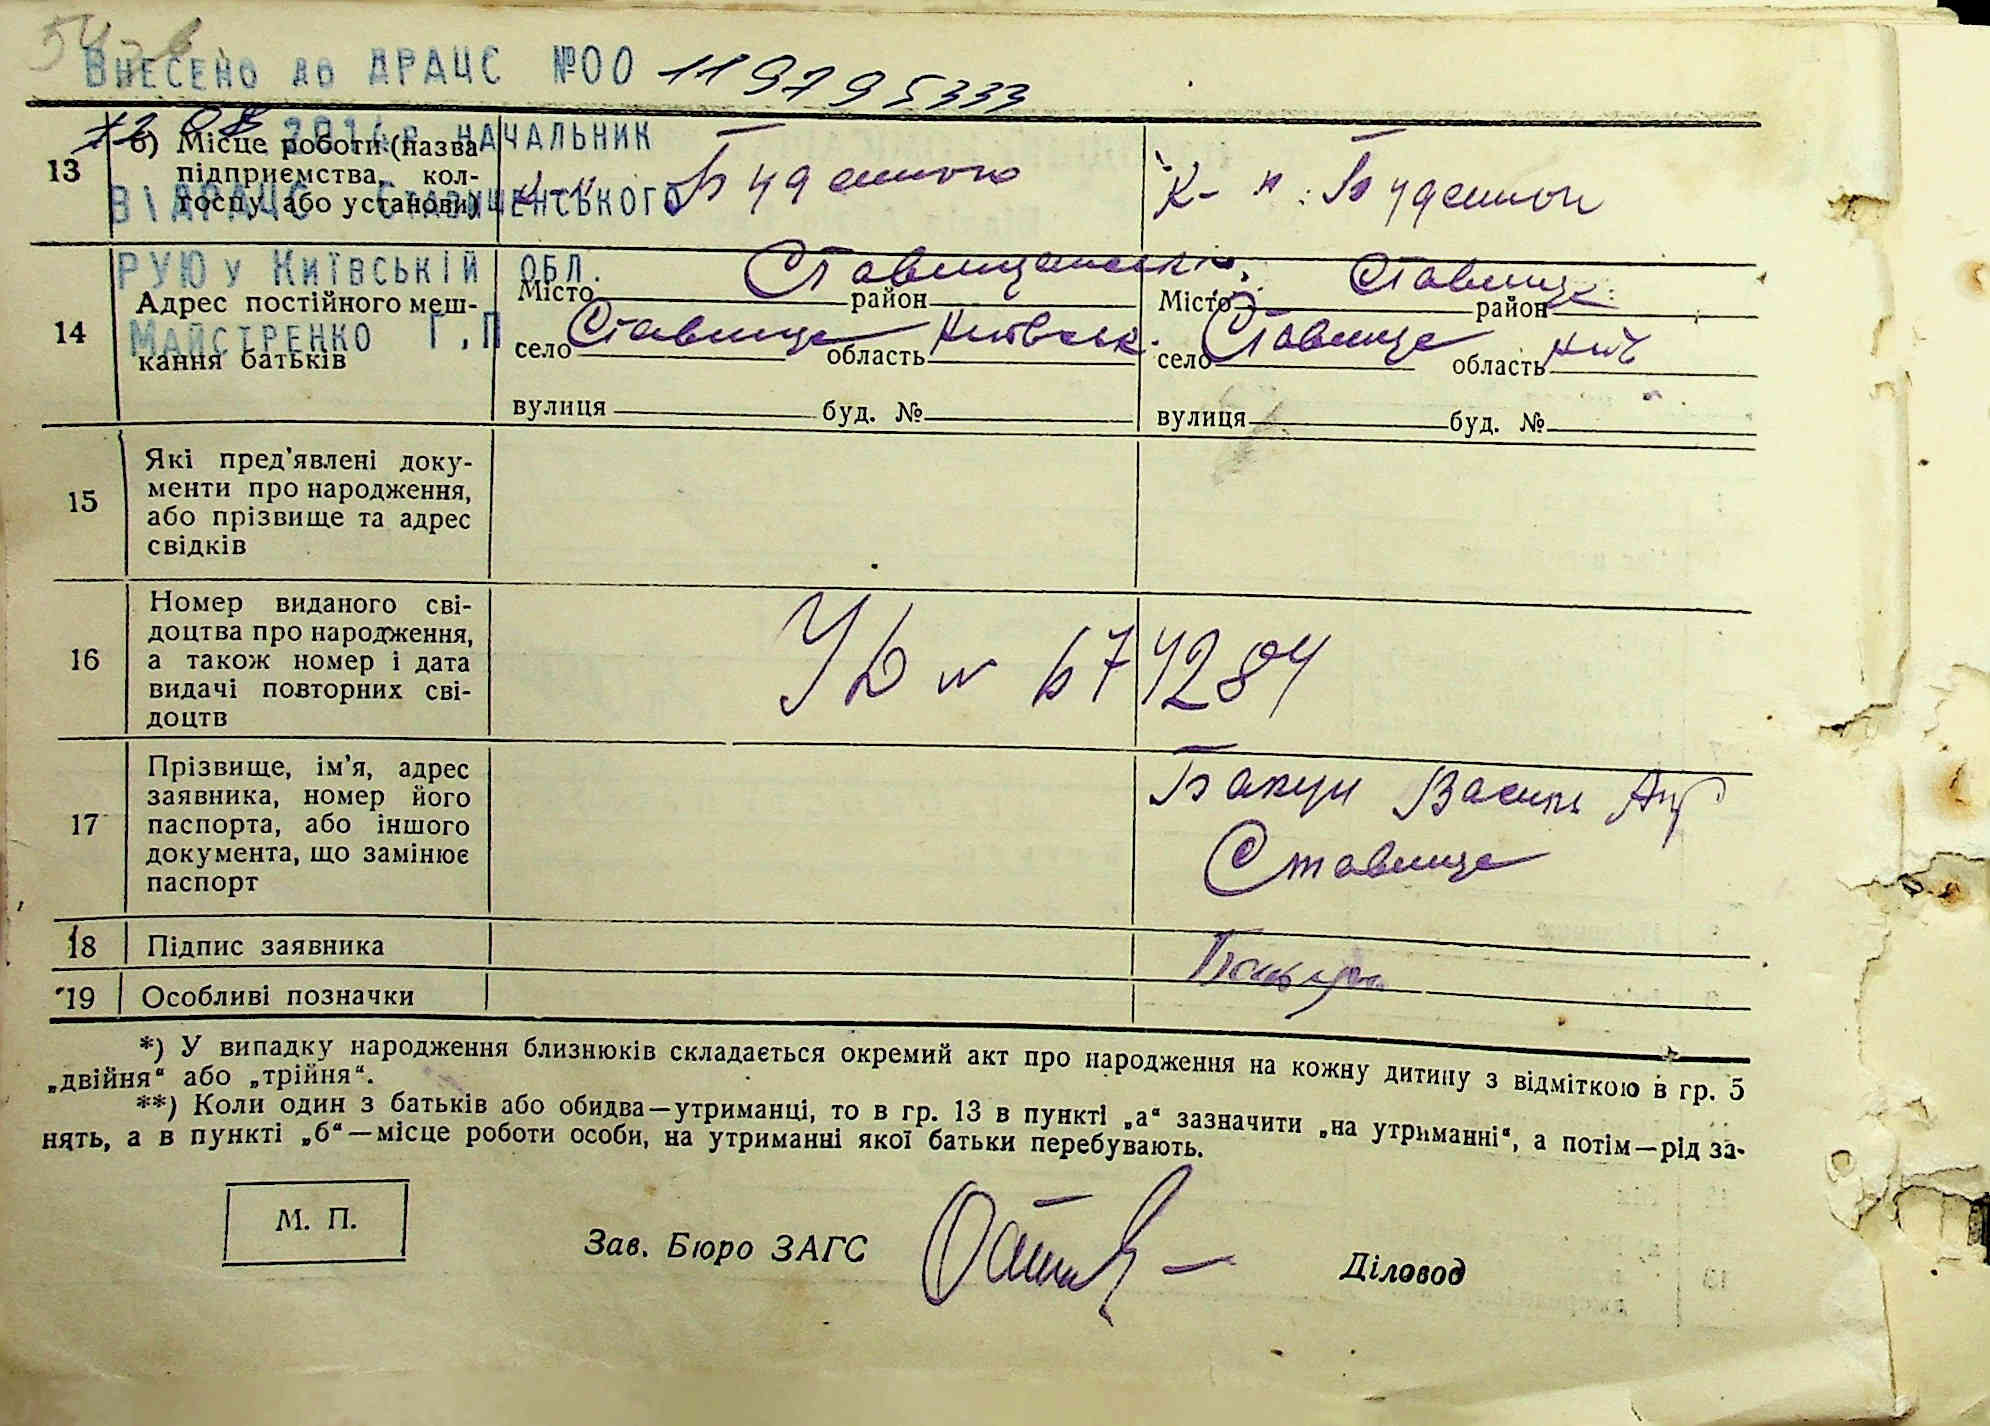 54
Внесено до ДРАЦС №00 119795333
12 08 2014р. начальник
13
б) Місце роботи (назва
підприємства, кол-
госпу або установи)
к-п Буденного
К-п: Буденног
ВДРАЦС Ставищенського
РУЮ у Київській обл.
Майстренко Г.П
14
Адрес постійного меш-
кання батьків
Місто район Ставищенськ.
село Ставище область Київськ.
вулиця буд. №
Місто район Ставище
село Ставище область Киів
вулиця буд. №
15
Які пред'явлені доку-
менти про народження,
або прізвище та адрес
свідків
16
Номер виданого сві-
доцтва про народження,
а також номер і дата
видачі повторних сві-
доцтв
УЬ № 674284
17
Прізвище, ім'я, адрес
заявника, номер його
паспорта, або іншого
документа, що замінює
паспорт
Бакун Василь
Ставище
18
Підпис заявника
Бакун
19
Особливі позначки
*) У випадку народження близнюків складається окремий акт про народження на кожну дитину з відміткою в гр. 5
„двійня“ або „трійня“.
**) Коли один з батьків або обидва—утриманці, то в гр. 13 в пункті „а“ зазначити „на утриманні“, а потім—рід за-
нять, а в пункті „б“—місце роботи особи, на утриманні якої батьки перебувають.
М. П.
Зав. Бюро ЗАГС
Діловод